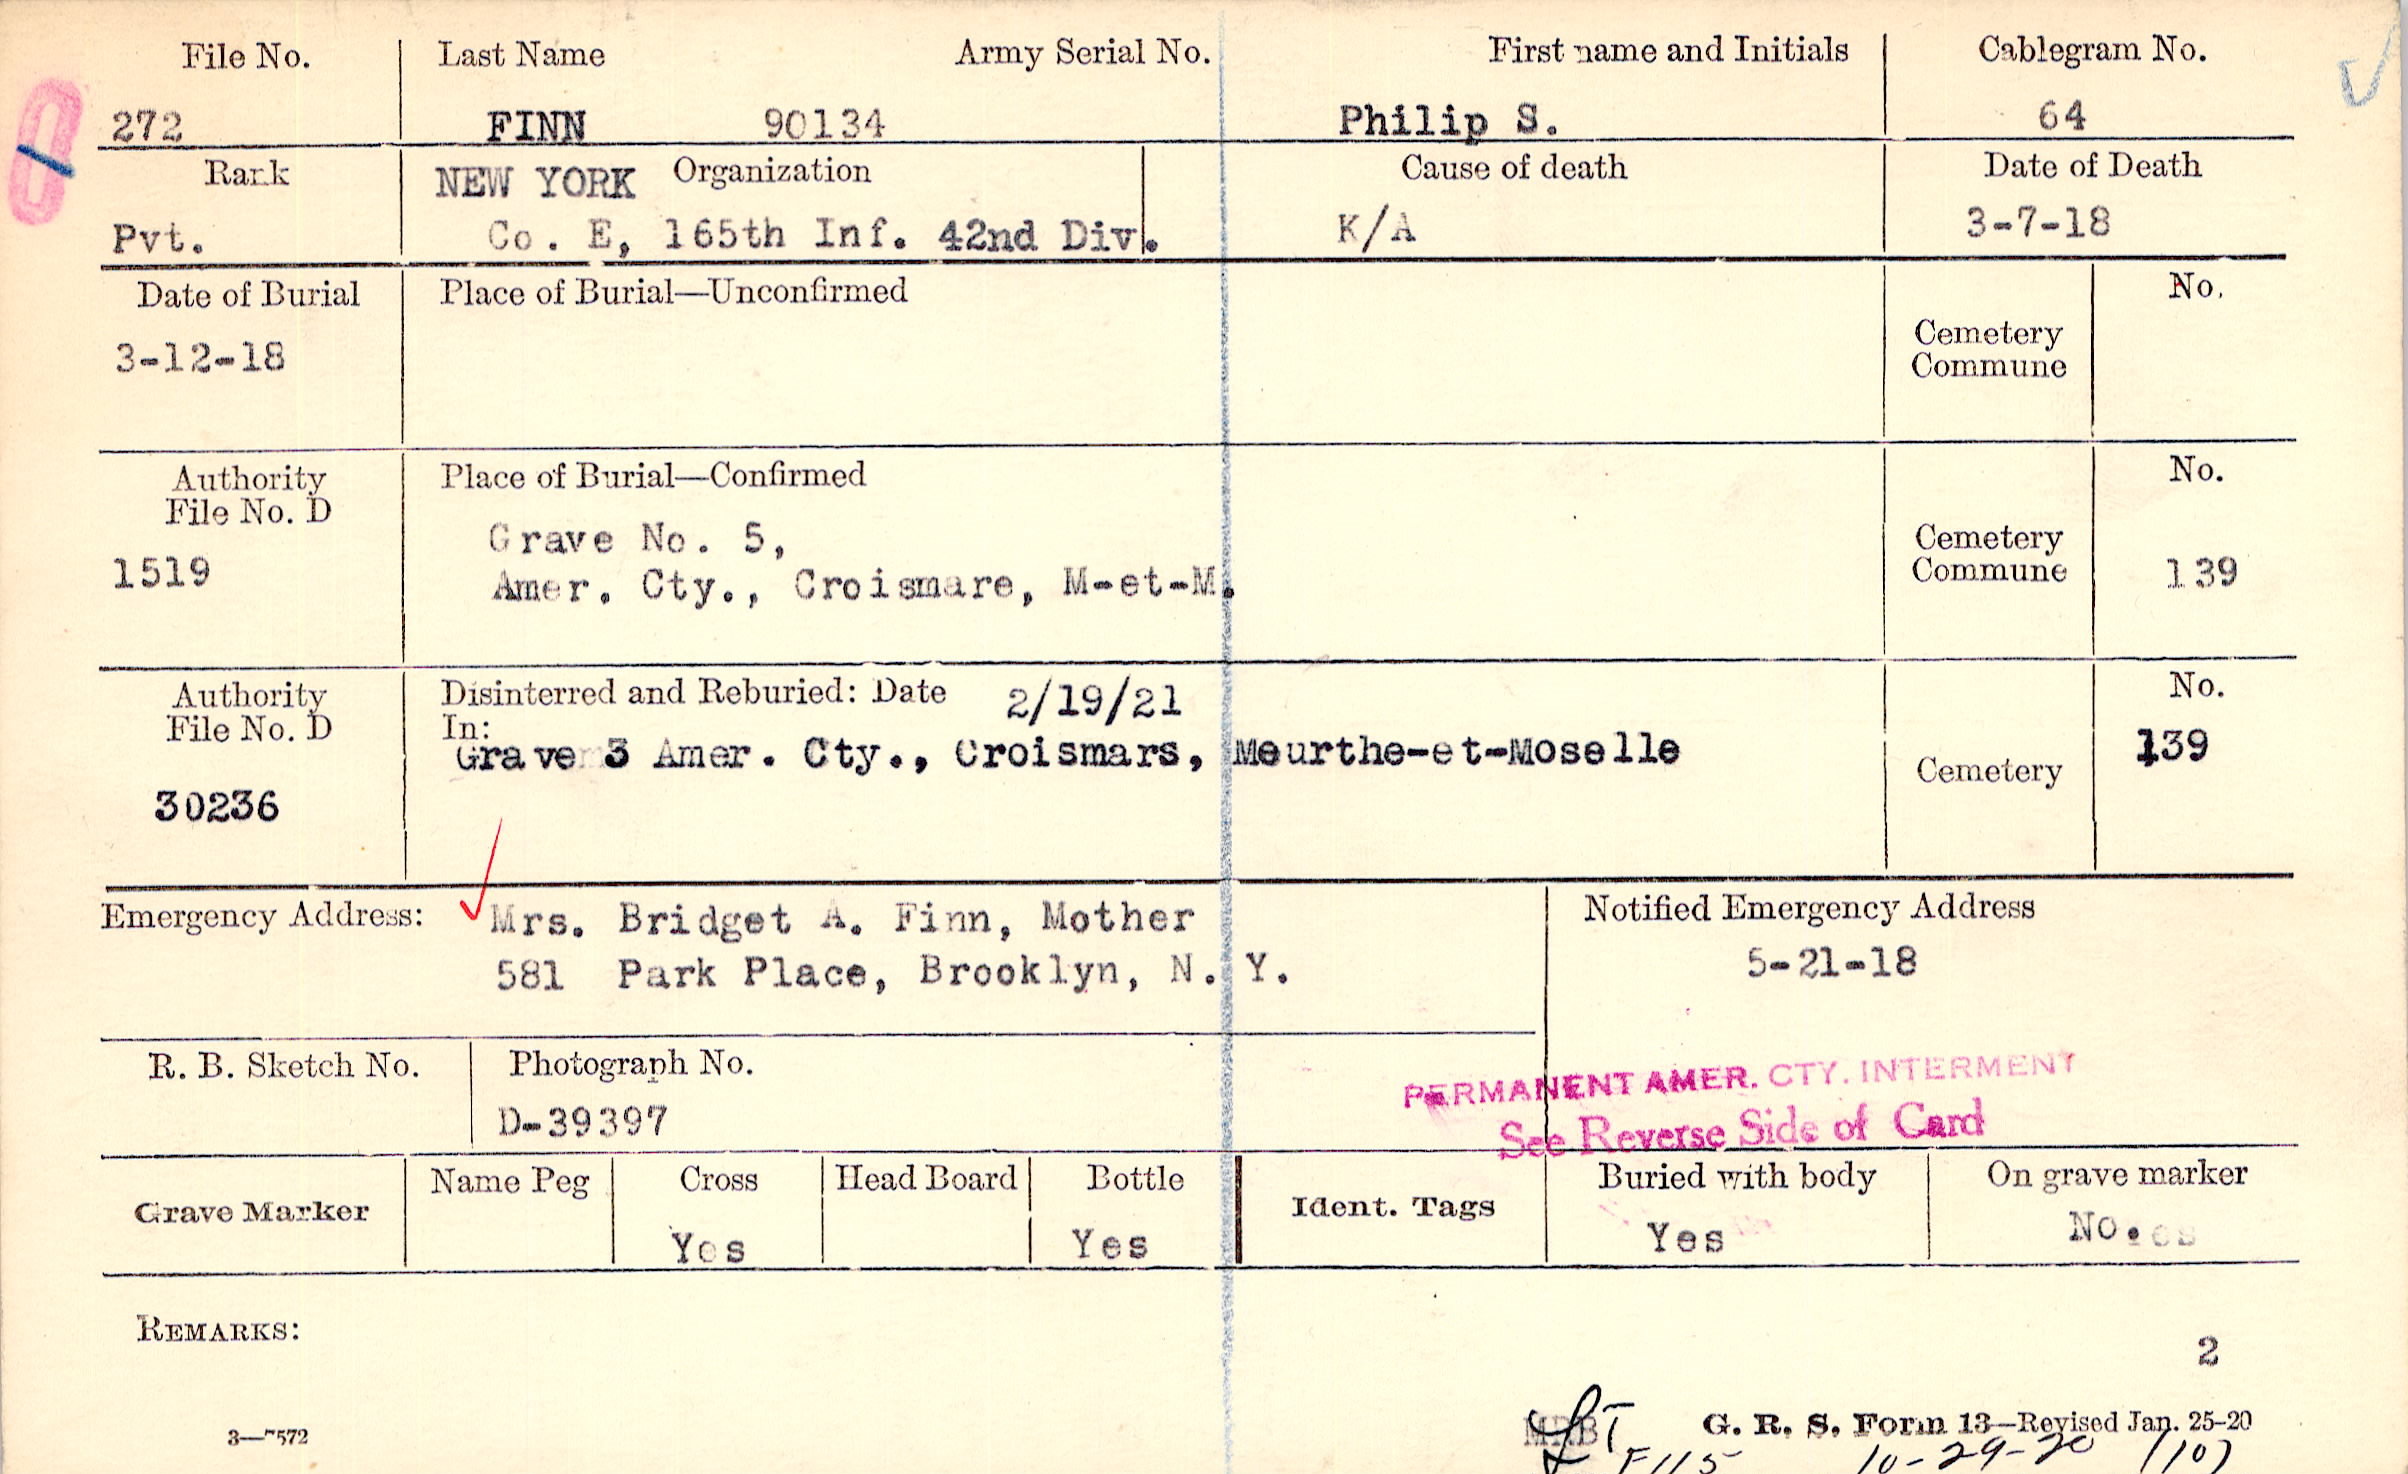 File No. Last Name Army Serial No. First name and Initials Cablegram No.
272 FINN 90134 Philip S. 64
Rank NEW YORK Organization Cause of death Date of Death
Pvt. Co. E, 165th Inf. 42nd Div. K/A 3-7-18
Date of Burial Place of Burial—Unconfirmed No.
3-12-18 Cemetery
Commune
Authority Place of Burial—Confirmed No.
File No. D
1519 Grave No. 5, Cemetery
Amer. Cty., Croismare, M-et-M. Commune 139
Authority Disinterred and Reburied: Date 2/19/21 No.
File No. D In:
Grave 3 Amer. Cty., Croismars, Meurthe-et-Moselle Cemetery 139
30236
Emergency Address: Mrs. Bridget A. Finn, Mother Notified Emergency Address
581 Park Place, Brooklyn, N. Y. 5-21-18
R. B. Sketch No. Photograph No.
D-39397
PERMANENT AMER. CTY. INTERMENT
See Reverse Side of Card
Grave Marker Name Peg Cross Head Board Bottle Ident. Tags Buried with body On grave marker
Yes Yes Yes No.
REMARKS:
2
3—7572 G. R. S. Form 13—Revised Jan. 25-20
10-29-20